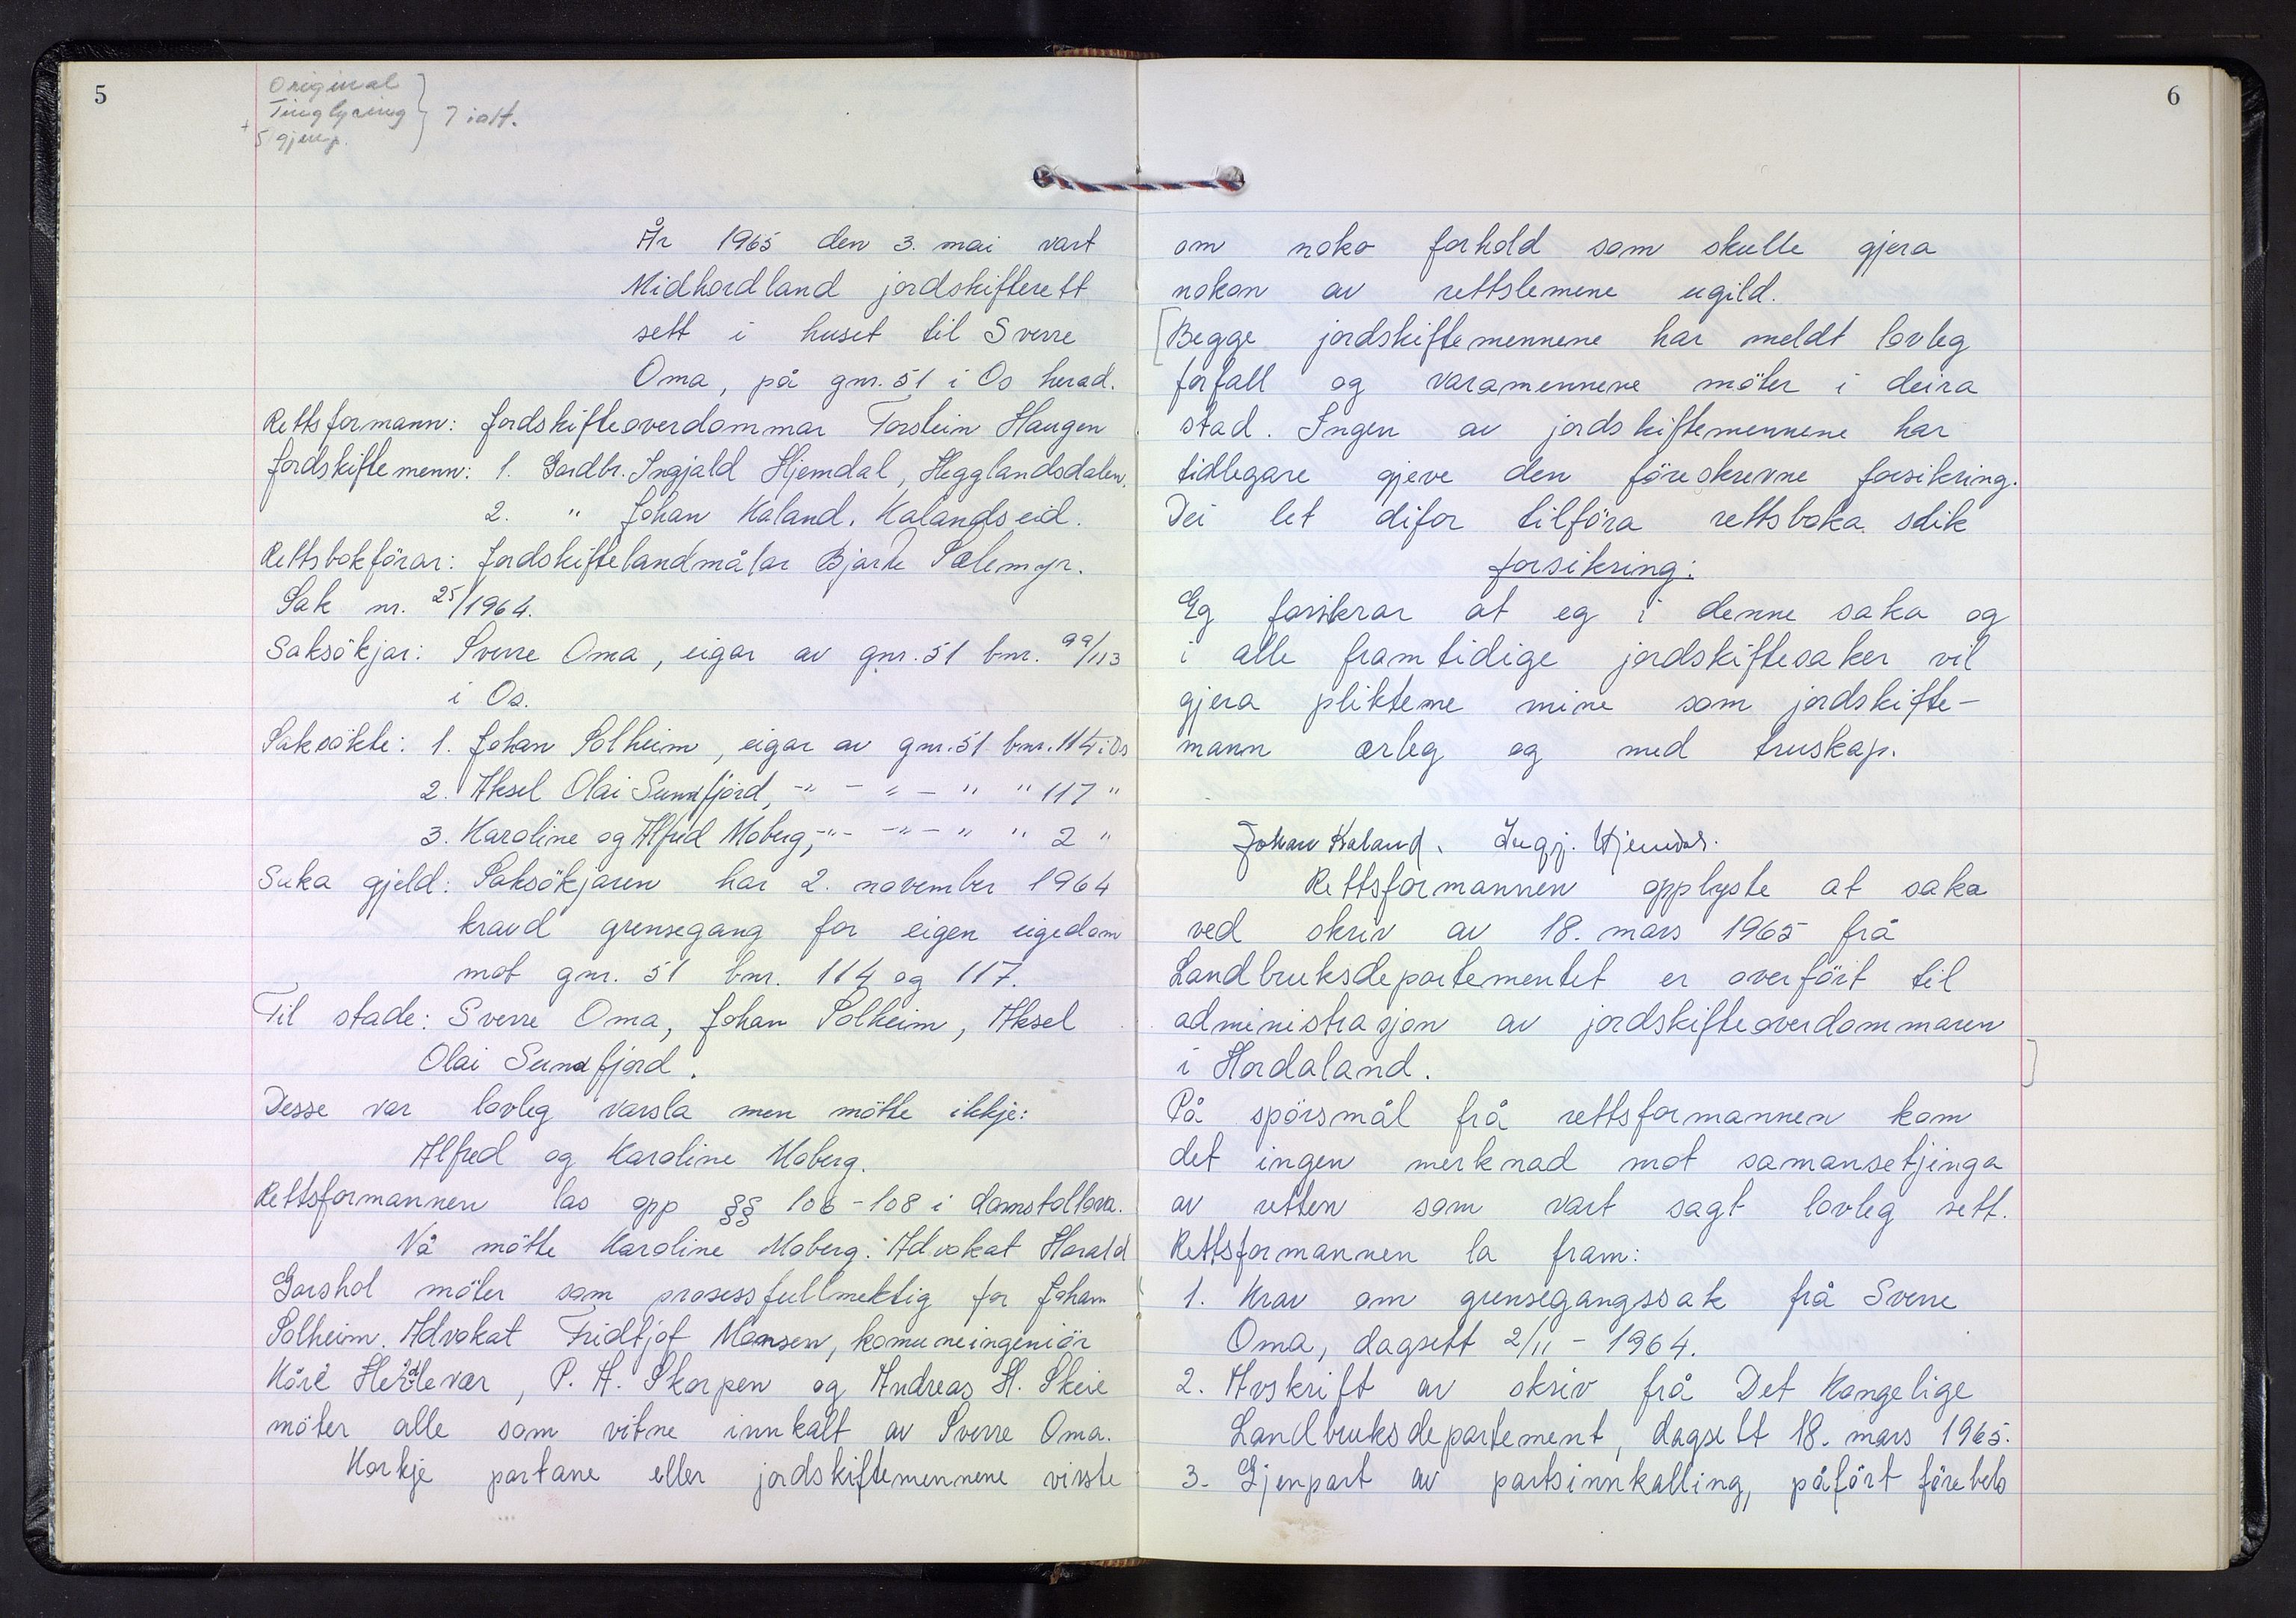 5
Original
Tinglysing } 7 ialt.
+ 5 gjenp.
År 1965 den 3. mai vart
Midhordland jordskifterett
sett i huset til Sverre
Oma, på gnr. 51 i Os herad.
Rettsformann: Jordskifteoverdommar Torstein Haugen
Jordskiftemenn: 1. Gardbr. Ingjald Hjemdal, Hegglandsdalen.
2. " Johan Kaland, Kalandseid.
Rettsbokförar: Jordskiftelandmålar Bjarte Sælemyr.
Sak nr. 25/1964.
Saksökjar: Sverre Oma, eigar av gnr. 51 bnr. 99/113
i Os.
Saksökte: 1. Johan Solheim, eigar av gnr. 51 bnr. 114 i Os
2. Aksel Olai Sunnfjord, -"- -"- " " 117 "
3. Karoline og Alfred Moberg, -"- -"- " " 2 "
Saka gjeld: Saksökjaren har 2. november 1964
kravd grensegang for eigen eigedom
mot gnr. 51 bnr. 114 og 117.
Til stade: Sverre Oma, Johan Solheim, Aksel
Olai Sunnfjord.
Desse var lovleg varsla men mötte ikkje:
Alfred og Karoline Moberg.
Rettsformannen las opp §§ 106-108 i domstollova.
Nå mötte Karoline Moberg. Advokat Harald
Garshol möter som prosessfullmektig for Johan
Solheim. Advokat Fridtjof Monsen, komuneingeniör
Kåre Herdlevær, P. A. Skorpen og Andreas H. Skeie
möter alle som vitne innkalt av Sverre Oma.
Korkje partane eller jordskiftemennene visste
6
om noko forhold som skulle gjera
nokon av rettslemene ugild.
[Begge jordskiftemennene har meldt lovleg
forfall og varamennene möter i deira
stad. Ingen av jordskiftemennene har
tidlegare gjeve den föreskrevne forsikring.
Dei let difor tilföra rettsboka slik
forsikring:
Eg forsikrar at eg i denne saka og
i alle framtidige jordskiftesaker vil
gjera pliktene mine som jordskifte-
mann ærleg og med truskap.
Johan Kaland. Ingj. Hjemdal.
Rettsformannen opplyste at saka
ved skriv av 18. mars 1965 frå
Landbruksdepartementet er overfört til
administrasjon av jordskifteoverdommaren
i Hordaland. ]
På spörsmål frå rettsformannen kom
det ingen merknad mot samansetjinga
av retten som vart sagt lovleg sett.
Rettsformannen la fram:
1. Krav om grensegangssak frå Sverre
Oma, dagsett 2/11 - 1964.
2. Avskrift av skriv frå Det Kongelige
Landbruksdepartement, dagsett 18. mars 1965.
3. Gjenpart av partsinnkalling, påfört förebels